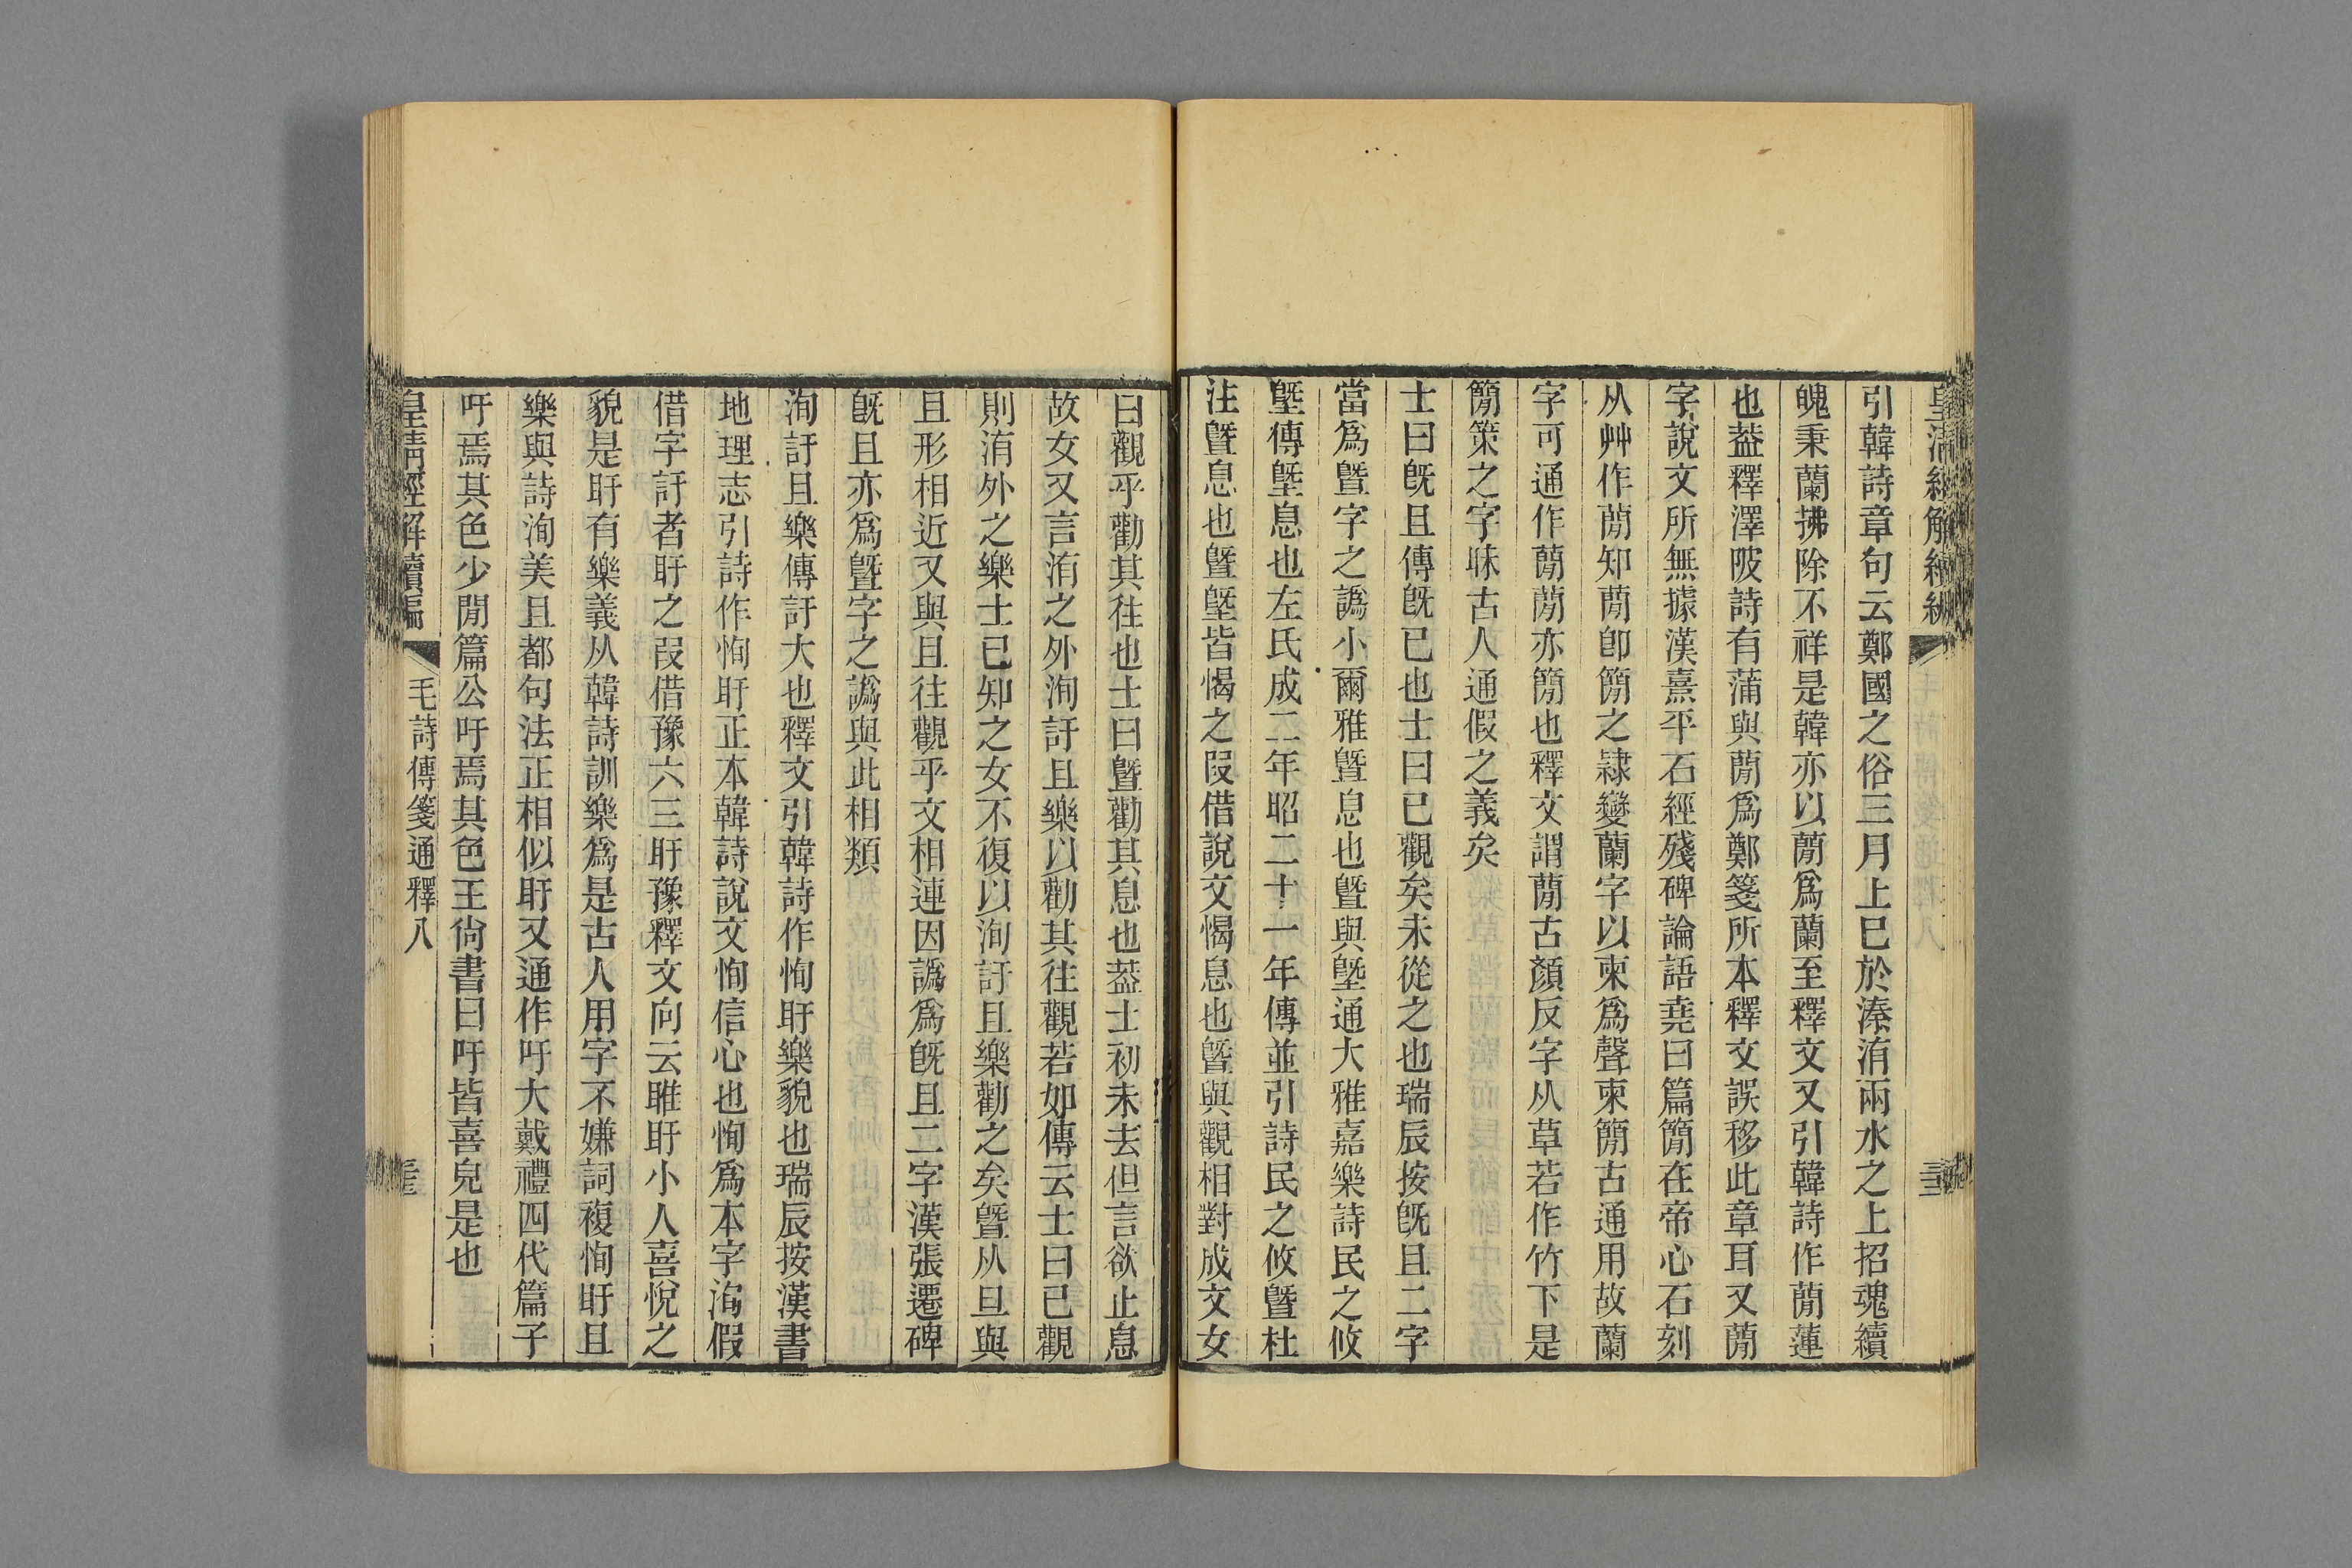 引韓詩章句云鄭國之俗三月上巳於溱洧兩水之上招魂續
魄秉蘭拂除不祥是韓亦以蕑爲蘭至釋文又引韓詩作蕑蓮
也葢釋澤陂詩有蒲與蕑爲鄭箋所本釋文誤移此章耳又蕑
字說文所無據漢熹平石經殘碑論語堯曰篇簡在帝心石刻
从艸作蕑知蕑卽簡之隷變蘭字以柬爲聲柬簡古通用故蘭
字可通作蕑蕑亦簡也釋文謂蕑古顏反字从草若作竹下是
簡策之字昧古人通假之義矣
士曰旣且傳旣已也士曰已觀矣未從之也瑞辰按旣且二字
當爲曁字之譌小爾雅曁息也曁與墍通大雅嘉樂詩民之攸
墍傳墍息也左氏成二年昭二十一年傳並引詩民之攸曁杜
注曁息也曁墍皆愒之叚借說文愒息也曁與觀相對成文女
曰觀乎勸其往也士曰曁勸其息也葢士初未去但言欲止息
故女又言洧之外洵訏且樂以勸其往觀若如傳云士曰已觀
則洧外之樂士已知之女不復以洵訏且樂勸之矣曁从旦與
且形相近又與且往觀乎文相連因譌爲旣且二字漢張遷碑
旣且亦爲曁字之譌與此相類
洵訏且樂傳訏大也釋文引韓詩作恂盱樂貌也瑞辰按漢書
地理志引詩作恂盱正本韓詩說文恂信心也恂爲本字洵假
借字訏者盱之叚借豫六三盱豫釋文向云睢盱小人喜悅之
貌是盱有樂義从韓詩訓樂爲是古人用字不嫌詞複恂盱且
樂與詩洵美且都句法正相似盱又通作吁大戴禮四代篇子
吁焉其色少閒篇公吁焉其色王尙書曰吁皆喜皃是也
皇清經解續編
毛詩傳箋通釋八